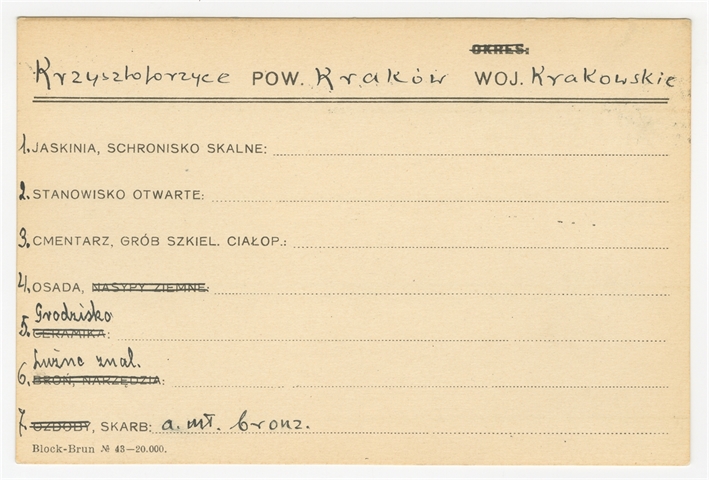 OKRES:
Krzysztoforzyce POW. Kraków WOJ. Krakowskie
1. JASKINIA, SCHRONISKO SKALNE:
2. STANOWISKO OTWARTE:
3. CMENTARZ, GRÓB SZKIEL. CIAŁOP.:
4. OSADA, NASYPY ZIEMNE:
Grodzisko
5. CERAMIKA:
Luźne znal.
6. BROŃ, NARZĘDZIA:
7. OZDOBY, SKARB: a. mł. bronz.
Block-Brun № 43—20.000.